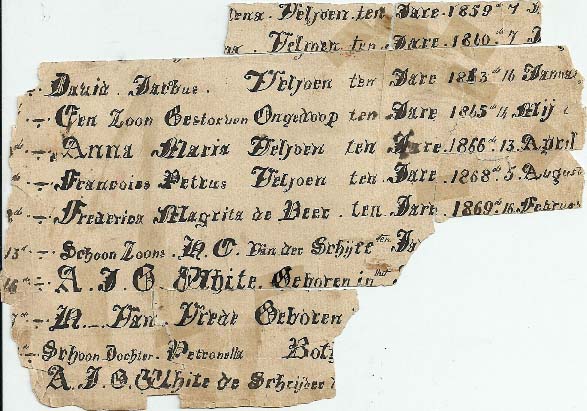 ena. Veljoen ten Jare 1859 th 7 J
na. Velmen ten Jare 1860 th 7 J
David Jacobus. Veljoen ten Jare 1863 th 16 Janua
Een Zoon Gestorven Ongedoop ten Jare 1865 th 14 Mij
Anna Maria Veljoen ten Jare. 1866 th. 13. April
Francoies Petrus Veljoen ten Jare 1868 th 5. August
Frederica Magrita de Beer. ten Jare. 1869 th. 16. Februar
13 d Schoon Zoons. N. C. Van der Schijte ten Ja
16 th A. J. G. White. Geboren in het
N. Van Vrede Geboren
Schoon Dochter. Petronella Bot
A. J. G. White de Schrijber